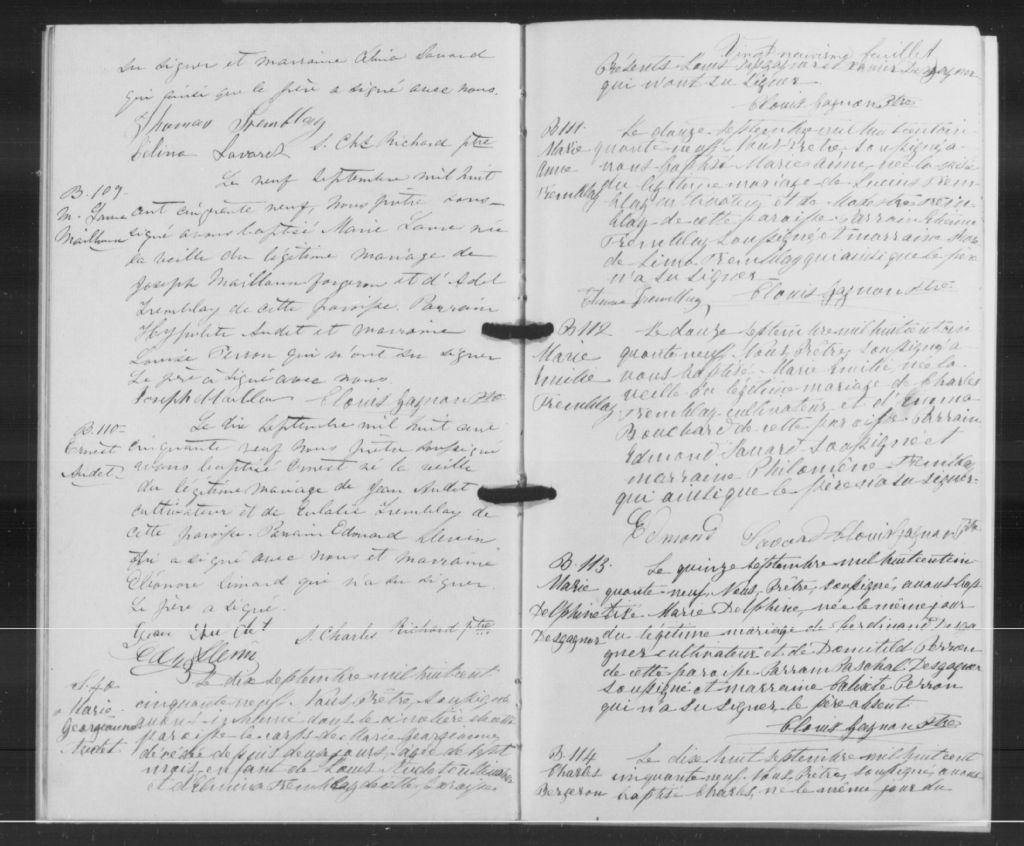 su signer et marraine Olina Savard
qui ainsi que le père a signé avec nous.
Thomas Tremblay
Délina Savard S. Chs Richard Ptre
B. 109-
M. Laure
Mailloux
Le neuf Septembre mil huit
cent cinquante neuf, nous prêtre sous-
signé avons baptisé Marie Laure née
la veille du légitime mariage de
Joseph Mailloux forgeron et d'Adel
Tremblay de cette paroisse. Parrain
Hyppolite Audet et marraine
Louise Perron qui n'ont su signer
Le père a signé avec nous.
Joseph Mailloux Clovis Gagnon Ptre
B. 110-
Ernest
Audet
Le dix Septembre mil huit cent
cinquante neuf nous prêtre soussigné
avons baptisé Ernest né la veille
du légitime mariage de Jean Audet
cultivateur et de Eulalie Tremblay de
cette paroisse. Parrain Edmond
qui a signé avec nous et marraine
Eléonore Simard qui n'a su signer
Le père a signé.
Jean Audet S. Charles Richard Ptre
S. 40
Marie
Georgianna
Audet
Le dix septembre mil huit cent
cinquante neuf. Nous, Prêtre, soussigné
avons inhumé dans le cimetière de cette
paroisse le corps de Marie Georgianna
décédée depuis deux jours, agée de sept
mois, enfant de Louis Audet cultivateur
et d' Tremblay de cette paroisse
Vingt neuvième feuillet
Présents Louis Desgagnés et Xavier Desgagnés
qui n'ont su signer
Clovis Gagnon Ptre
B. 111.
Marie
Anne
Tremblay
Le douze Septembre mil huit cent cin
quante neuf. Nous, Prêtre, soussigné a-
vons baptisé Marie Anne, née la veille
du légitime mariage de Trem
blay et de Trem
blay de cette paroisse Parrain
Tremblay soussigné et marraine
de Lima Tremblay qui ainsi que le père
n'a su signer
Tremblay Clovis Gagnon Ptre
B. 112
Marie
Emilie
Tremblay
Le douze septembre mil huit cent cin
quante neuf. Nous, Prêtre, soussigné a-
vons baptisé Marie Emilie, née la
veille du légitime mariage de Charles
Tremblay cultivateur et d'Emma
Bouchard de cette paroisse Parrain
Edmond Savard soussigné et
marraine Philomène Tremblay
qui ainsi que le père n'a su signer
Edmond Savard Clovis Gagnon Ptre
B. 113.
Marie
Delphine
Desgagnés
Le quinze septembre mil huit cent cin
quante neuf. Nous, Prêtre, soussigné, avons bap
tisé Marie Delphine, née le même jour
du légitime mariage de Ferdinand Desga
gnés cultivateur et de Domitild Perron
de cette paroisse Parrain Paschal Desgagnés
soussigné et marraine Calixte Perron
qui n'a su signer le père absent
Clovis Gagnon Ptre
B. 114
Charles
Bergeron
Le dix huit septembre mil huit cent
cinquante neuf. Nous, Prêtre, soussigné, avons
baptisé Charles, né le même jour du